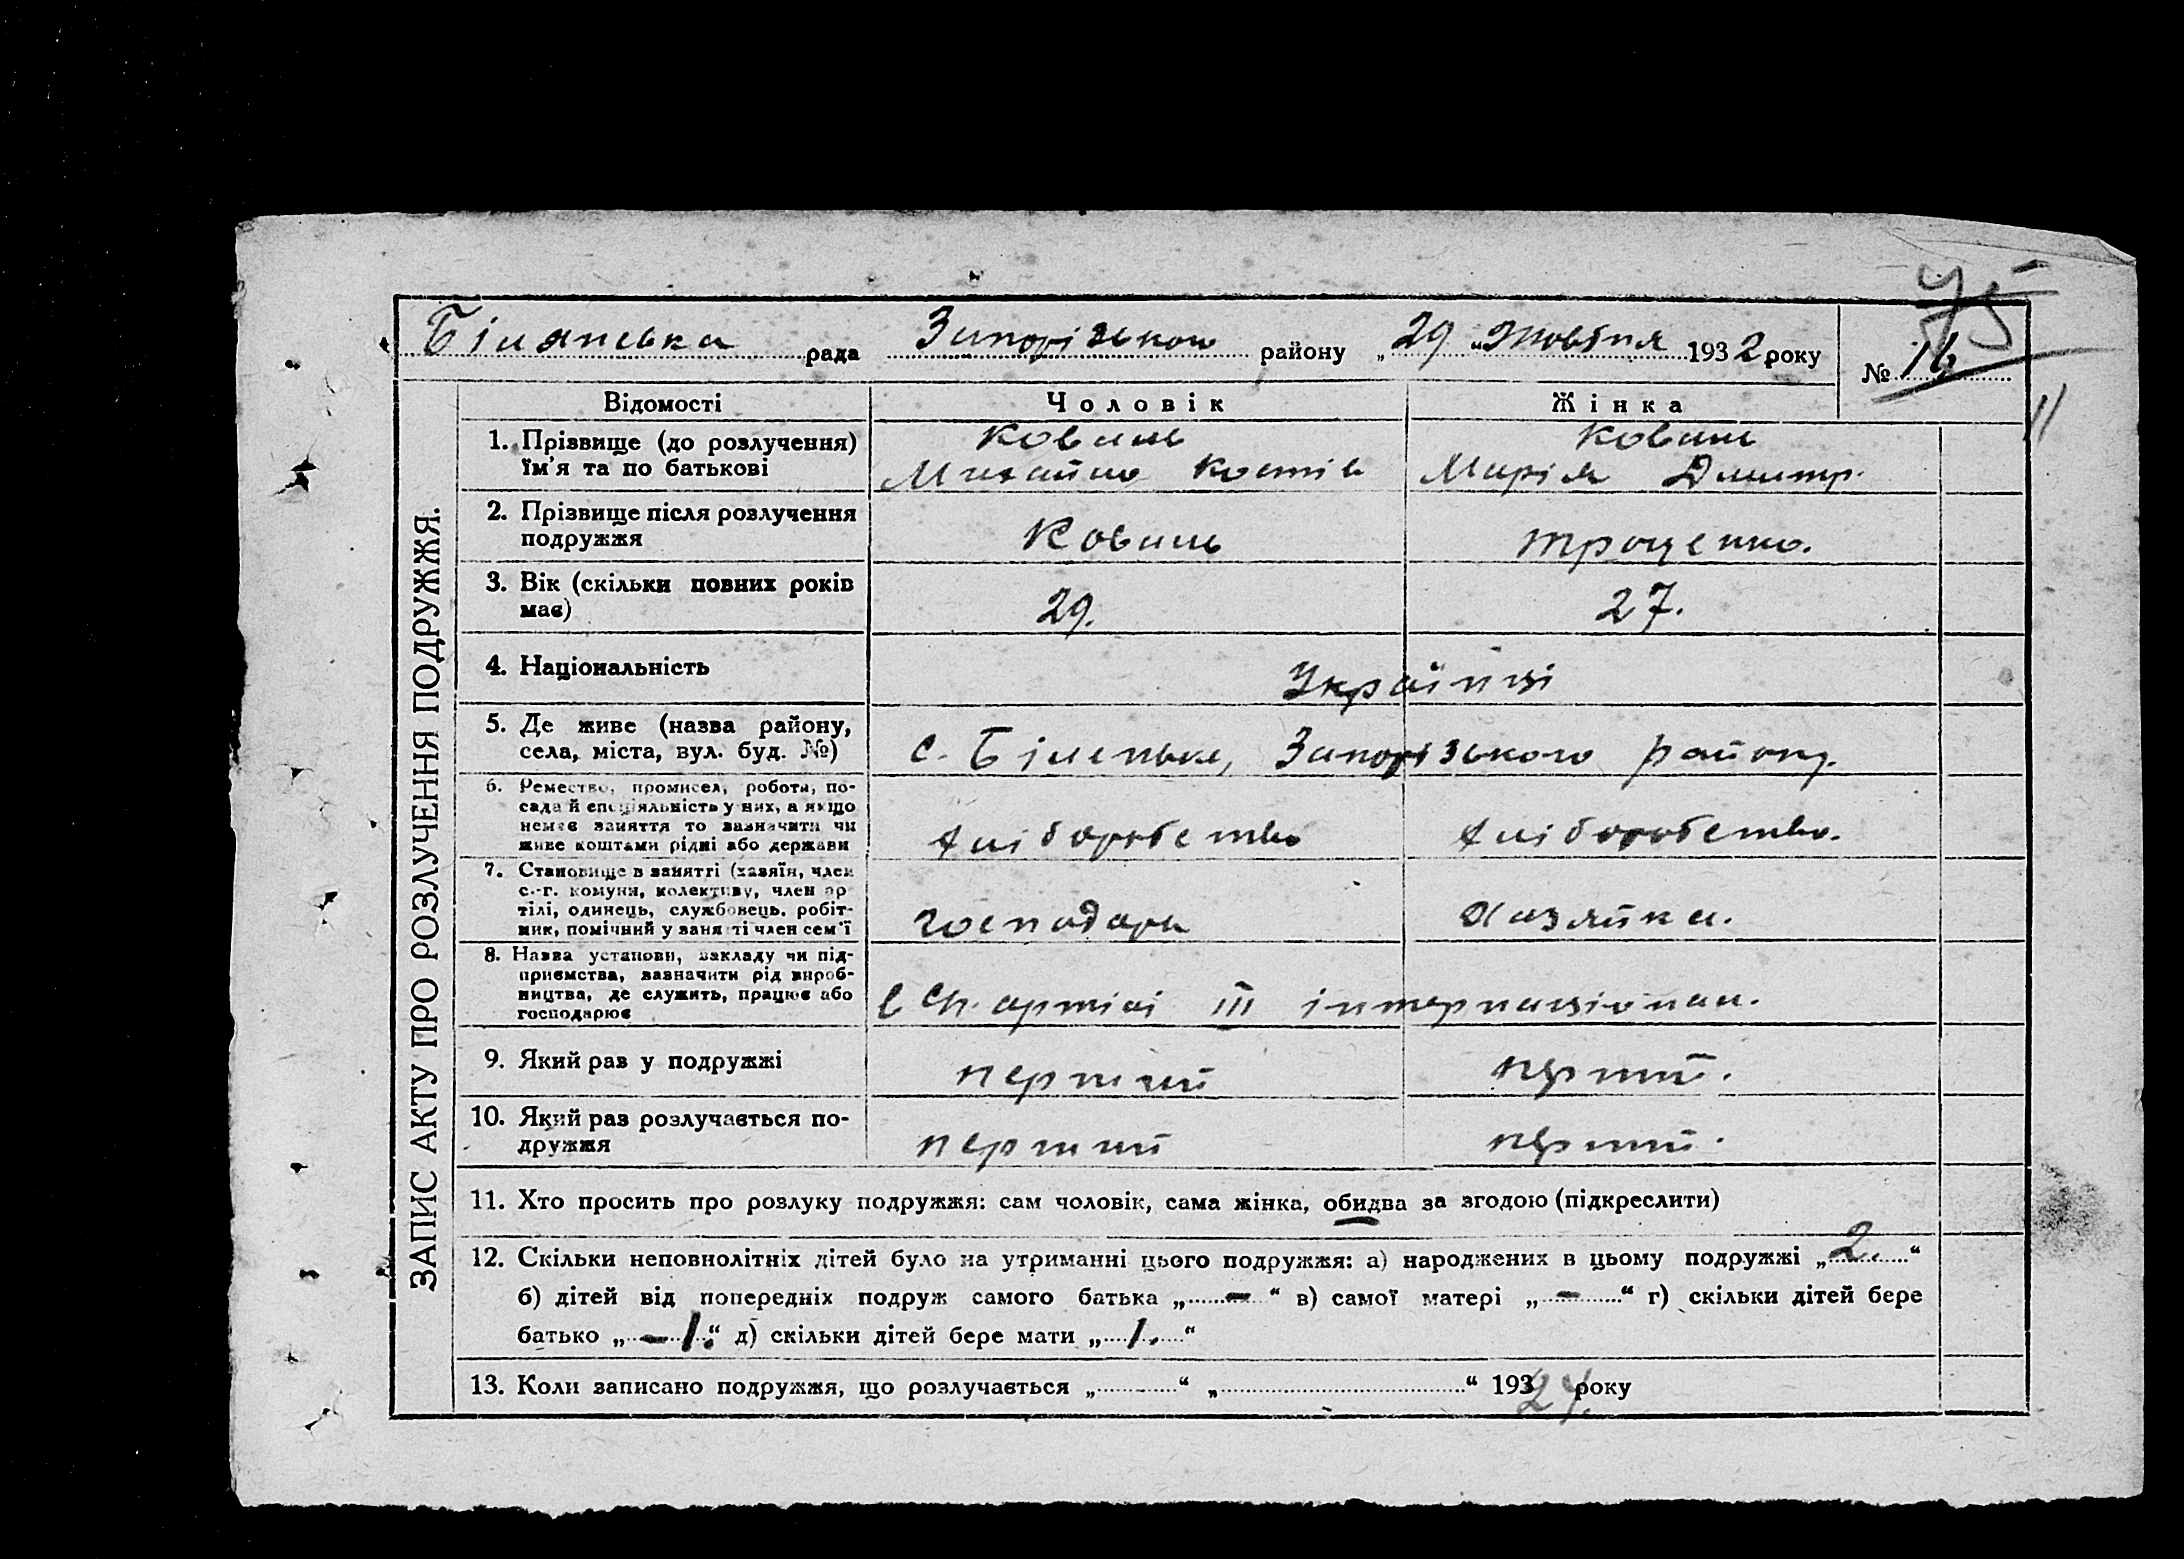 75
Білянська рада Запорізького району „29“ Жовтня 1932 року № 16
11
ЗАПИС АКТУ ПРО РОЗЛУЧЕННЯ ПОДРУЖЖЯ.
Відомості Чоловік Жінка
1. Прізвище (до розлучення) Коваль Коваль
їм'я та по батькові Михайло Костів Марія Дмитр.
2. Прізвище після розлучення
подружжя Коваль Трощенко.
3. Вік (скільки повних років
має) 29. 27.
4. Національність Українці
5. Де живе (назва району,
села, міста, вул. буд. №) с. Біленьке, Запорізького району.
6. Ремество, промисел, робота, по-
сада й спеціяльність у них, а якщо
немає заняття то зазначити чи
живе коштами рідні або держави хліборобство хліборобство.
7. Становище в занятті (хазяїн, член
с.-г. комуни, колективу, член ар
тілі, одинець, службовець, робіт-
ник, помічний у занятті член сем'ї господарь хазяйка.
8. Назва установи, закладу чи під-
приємства, зазначити рід вироб-
ництва, де служить, працює або
господарює в артілі III інтернаціонал.
9. Який раз у подружжі перший перший.
10. Який раз розлучається по-
дружжя перший перший.
11. Хто просить про розлуку подружжя: сам чоловік, сама жінка, обидва за згодою (підкреслити)
12. Скільки неповнолітніх дітей було на утриманні цього подружжя: а) народжених в цьому подружжі „2.“
б) дітей від попередніх подруж самого батька „-“ в) самої матері „-“ г) скільки дітей бере
батько „- 1.“ д) скільки дітей бере мати „1.“
13. Коли записано подружжя, що розлучається „ “ „ “ 193 24. року